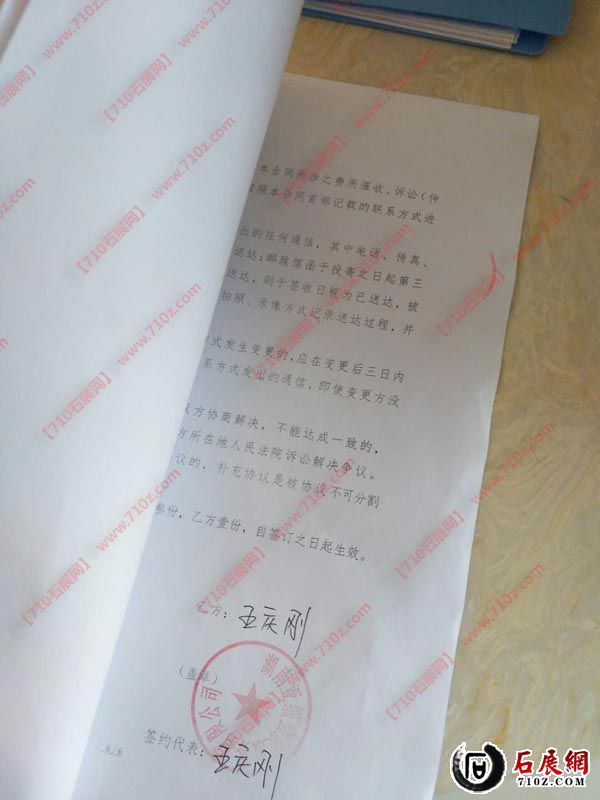 本合同所涉之费用催收、诉讼(仲
按照本合同首部记载的联系方式进
出的任何通信,其中电话、传真、
送达;邮政信函于投寄之日起第三
送达,则于签收日视为已送达,被
拍照、录像方式记录送达过程,并
式发生变更的,应在变更后三日内
系方式发出的通信,即使变更方没
双方协商解决,不能达成一致的,
方所在地人民法院诉讼解决争议。
议的,补充协议是被协议不可分割
叁份,乙方壹份,自签订之日起生效。
乙方:王庆刚
(盖章)
限公司
签约代表:王庆刚
6/6
【710石展网】
www.710z.com
石展網
710Z.COM